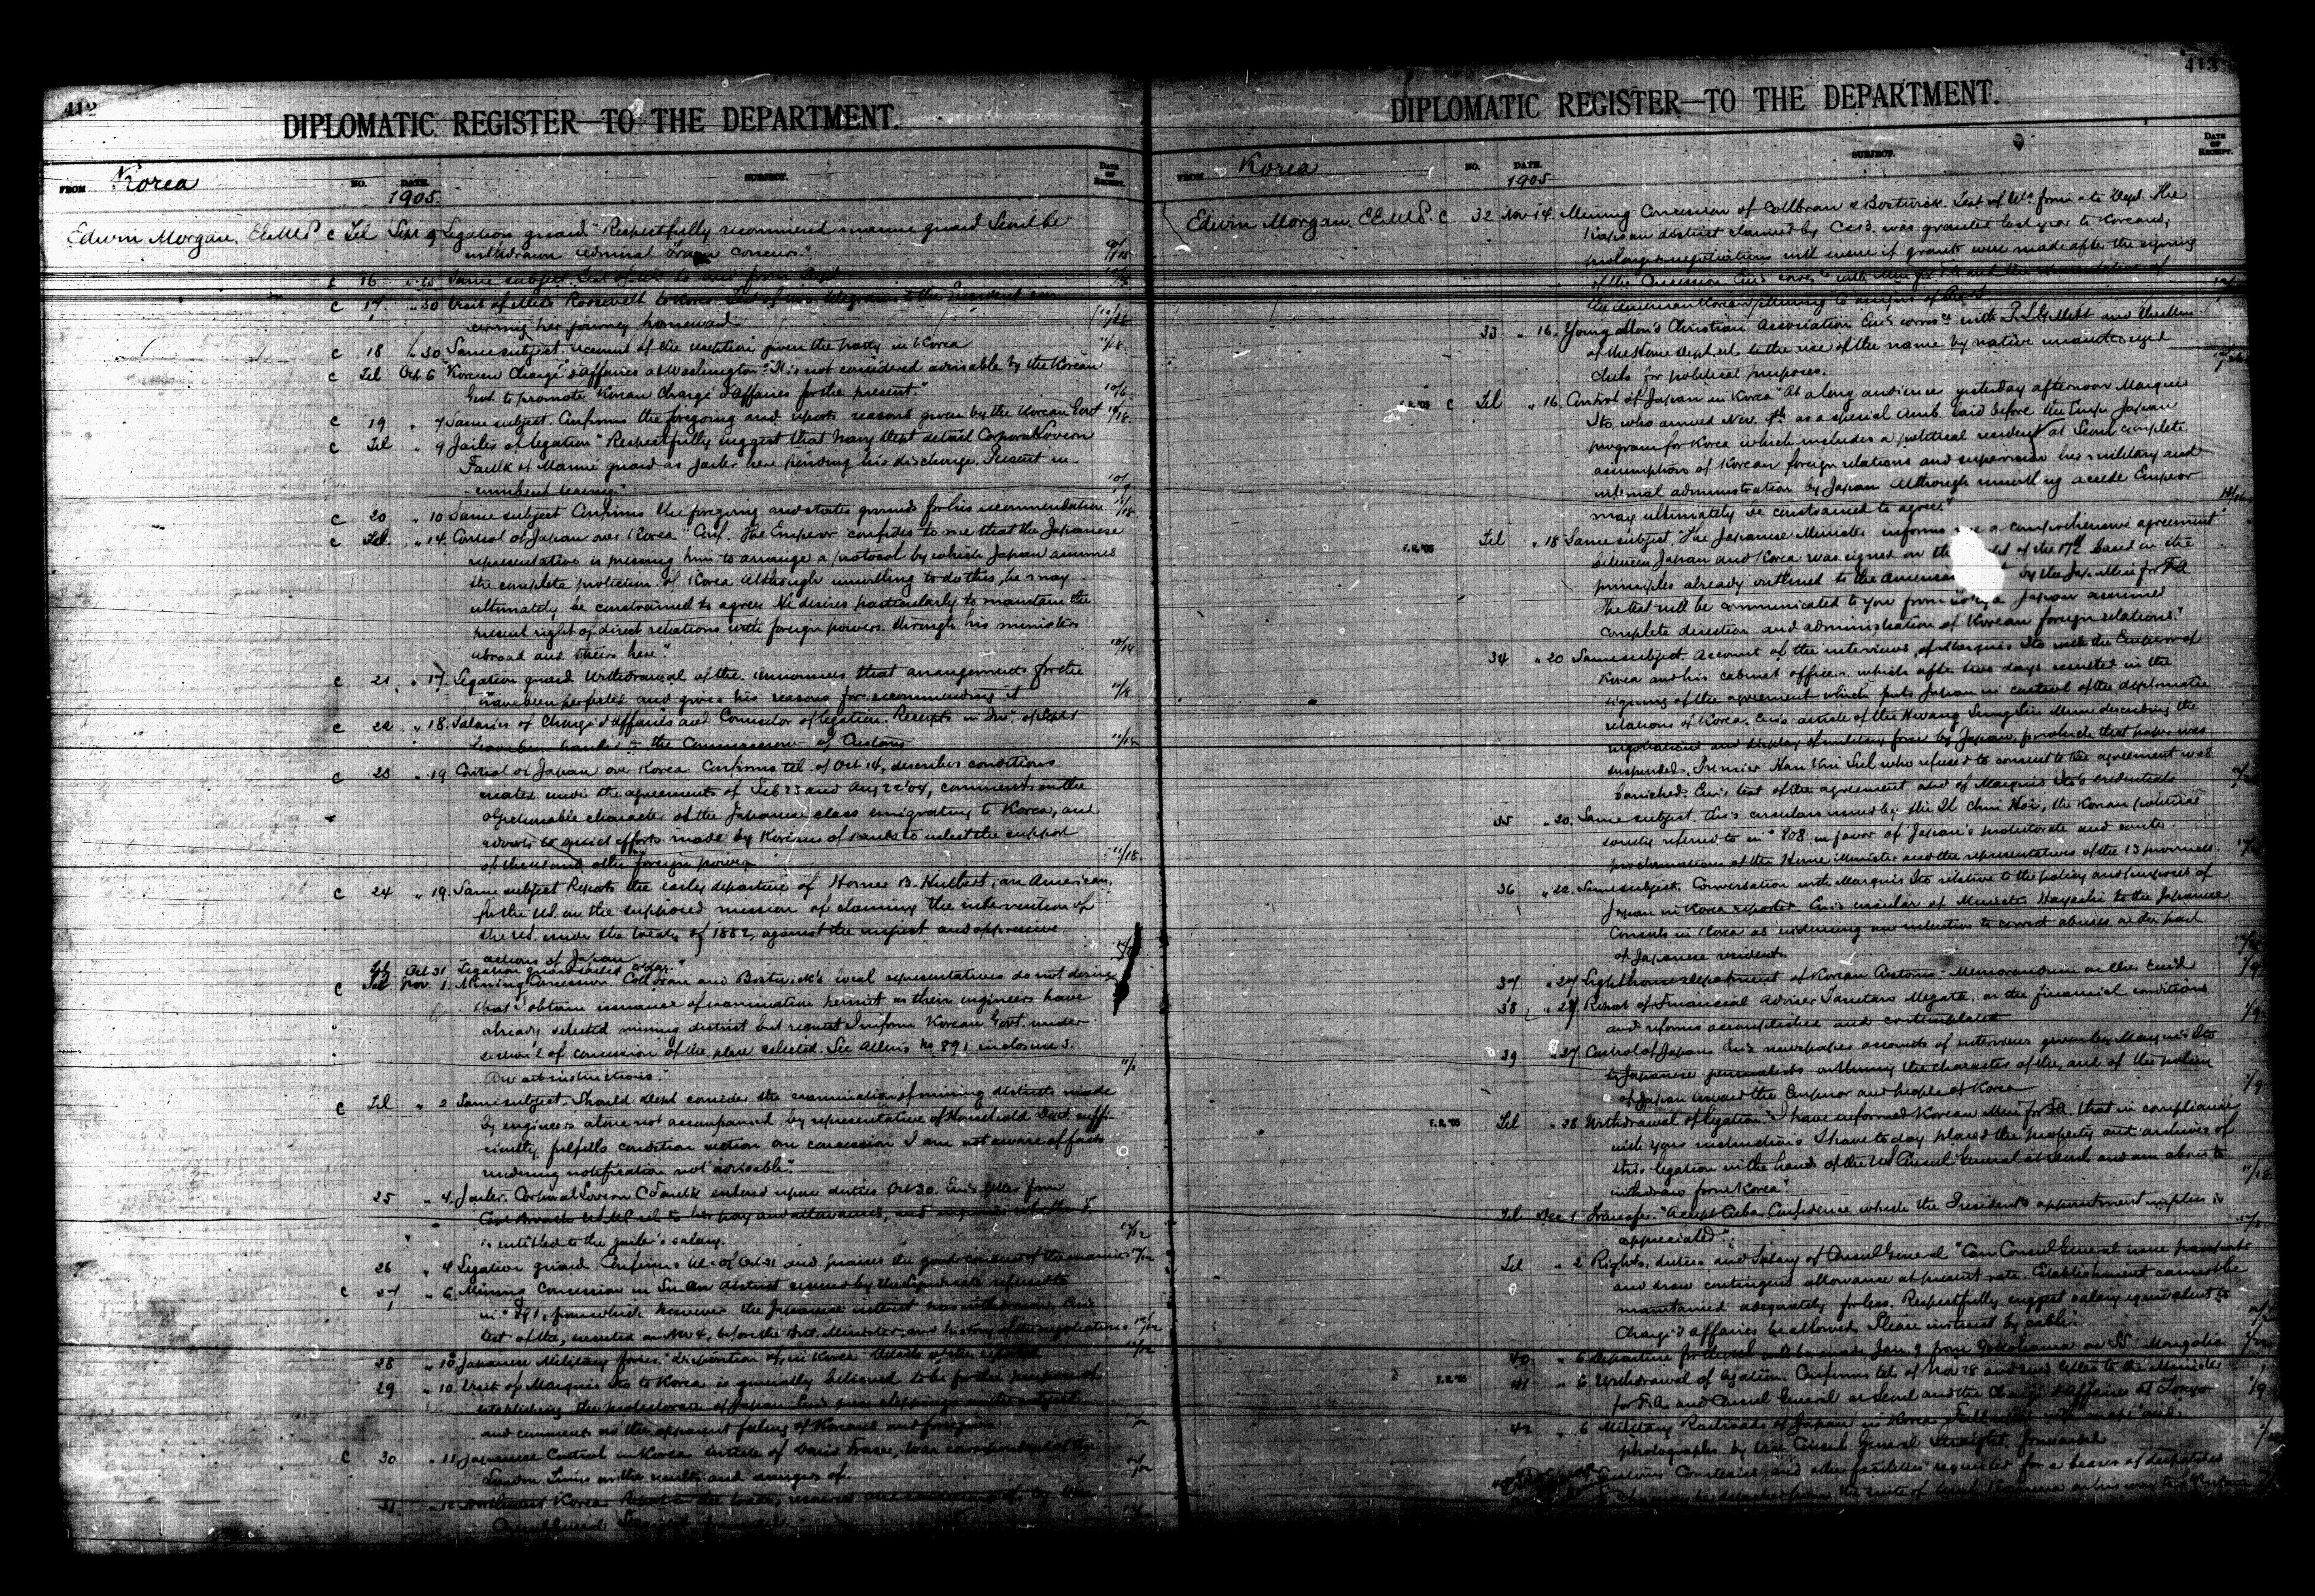 412
DIPLOMATIC REGISTER—TO THE DEPARTMENT.
FROM Korea
NO. DATE. SUBJECT. DATE OF RECEIPT.
1905.
Edwin Morgan, E.E.&M.P. C Tel Sept 9 Legation guard "Respectfully recommend marine guard Seoul be
withdrawn admiral concurs."
C 16 Same subject. Text of tel. to and from Dept
C 17 " 30 Visit of Miss Roosevelt to Korea. Text of two telegrams to the President con
cerning her journey homeward
C 18 " 30 Same subject. account of the reception given the party in Korea
C Tel Oct 6 "Korean Chargé d'affaires at Washington. "It is not considered advisable by the Korean
Govt to promote Korean Chargé d'affaires for the present." 10/6
C 19 " 7 Same subject. Confirms the foregoing and reports reasons given by the Korean Govt
C Tel " 9 Jailer at legation "Respectfully suggest that Navy Dept detail Corporal Lovern
Faulk of Marine guard as jailer here pending his discharge. Present in-
cumbent leaving." 10/9
C 20 " 10 Same subject Confirms the foregoing and states grounds for his recommendation 11/18
C Tel " 14. Control of Japan over Korea "Conf. The Emperor confides to me that the Japanese
representative is pressing him to arrange a protocol by which Japan assumes
the complete protection of Korea Although unwilling to do this, he may
ultimately be constrained to agree. He desires particularly to maintain the
present right of direct relations with foreign powers through his ministers
abroad and theirs here." 10/14
C 21 " 17 Legation guard Withdrawal of the. Announces that arrangements for the
have been perfected and gives his reasons for recommending it 11/18
C 22 " 18. Salaries of Chargé d'affaires and Counselor of legation. Receipts in of Sept
have been handed to the Commissioner of Customs
C 23 " 19 Control of Japan over Korea. Confirms tel. of Oct 14, describes conditions
created under the agreements of Feb 23 and Aug 22 '04, comments on the
objectionable character of the Japanese class emigrating to Korea, and
adverts to quiet efforts made by Koreans of rank to enlist the support
of the U.S. and other foreign powers 11/18
C 24 " 19. Same subject Reports the early departure of Homer B. Hulbert, an American,
for the U.S. on the supposed mission of claiming the intervention of
the U.S. under the treaty of 1882, against the unjust and oppressive
actions of Japan
Tel Oct 31 Legation guard sailed
C Tel Nov. 1. Mining Concession "Collbran and Bostwick's local representatives do not desire
that I obtain issuance of examination permit as their engineers have
already selected mining district but request I inform Korean Govt. under
section 2 of concession of the place selected. See Allen's No 891 inclosure 3.
Await instructions." 11/1
C Tel " 2 Same subject. Should dept consider the examination of mining districts made
by engineers alone not accompanied by representative of Household Dept. suffi-
ciently fulfills condition section one concession I am not aware of facts
rendering notification not advisable."
25 " 4. Jailer. Corporal Lovern C Faulk entered upon duties Oct 30. Enc's letter from
Capt Broatch U.S.M.C. rel. to his pay and allowances, and inquires whether F.
is entitled to the jailer's salary. 12/12
26 " 4 Legation guard. Confirms tel. of Oct 31 and praises the good conduct of the marines 12/12
C 27 " 6. Mining Concession in Su An district signed by the referred to
in No 891, from which however the Japanese interest has withdrawn. Enc's
text of the, executed on Nov 4, before the Brit. Minister, and history of the negotiations 12/12
28 " 10 Japanese Military forces, disposition of, in Korea Details of the reported
29 " 10. Visit of Marquis Ito to Korea is generally believed to be for the purpose of
establishing the protectorate of Japan Enc's press clippings on the subject
and comments on the apparent feeling of Koreans and foreigners
C 30 " 11 Japanese Control in Korea. Article of David Fraser, War correspondent of the
London Times on the results and dangers of.
31 " 12 Northwest Korea Report
413
DIPLOMATIC REGISTER—TO THE DEPARTMENT.
FROM Korea
NO. DATE. SUBJECT. DATE OF RECEIPT.
1905
Edwin Morgan, E.E.&M.P. C 32 Nov 14. Mining Concession of Collbran & Bostwick. Text of tels. from & to Dept. The
Kapsan district claimed by C & B. was granted last year to Koreans;
prolonged negotiations will ensue if grants were made after the signing
of the Concession Enc's corres. with Min for F.A. and
33 " 16. Young Men's Christian Association Enc's corres. with P. L. Gillett and the Min
of the Home Dept rel. to the use of the name by native unauthorized
clubs for political purposes.
F.R. '05 C Tel " 16. Control of Japan in Korea "At a long audience yesterday afternoon Marquis
Ito who arrived Nov. 9th as a special Amb. laid before the Emp. Japan
program for Korea which includes a political resident at Seoul complete
assumption of Korean foreign relations and supervision her military and
internal administration by Japan Although unwilling accede Emperor
may ultimately be constrained to agree."
F.R. '05 Tel " 18 Same subject, "The Japanese Minister informs me a comprehensive agreement
between Japan and Korea was signed on the of the 17th based on the
principles already outlined to the American by the Jap. Min for F.A.
The text will be communicated to you from Tokyo Japan assumed
complete direction and administration of Korean foreign relations."
34 " 20 Same subject. Account of the interviews of Marquis Ito with the Emperor of
Korea and his cabinet officers, which after two days resulted in the
signing of the agreement which puts Japan in control of the diplomatic
relations of Korea. Enc's article of the Hwang Sung Sin Mun describing the
negotiations and display of military force by Japan, for which that paper was
suspended. Premier Han Kui Sul who refused to consent to the agreement was
banished. Enc's text of the agreement and of Marquis Ito's credentials
35 " 20. Same subject. Enc's circulars issued by the Il Chin Hoi, the Korean political
society referred to in No 808 in favor of Japan's protectorate and
proclamations of the Home Minister and the representatives of the 13 provinces
36 " 22. Same subject. Conversation with Marquis Ito relative to the policy and purposes of
Japan in Korea reported. Enc's circular of Minister Hayashi to the Japanese
Consuls in Korea as evidencing an intention to correct abuses on the part
of Japanese residents
37 " 27 Lighthouse department of Korean Customs - Memorandum on the, Enc'd
38 " 27 Report of Financial Adviser Tanetaro Megata, on the financial conditions
and reforms accomplished and contemplated 1/9
39 " 27 Control of Japan Enc's newspaper accounts of interviews given by Marquis Ito
to Japanese journalists outlining the character of the, and of the policy
of Japan toward the Emperor and people of Korea 1/9
F.R. '05 Tel " 28 Withdrawal of legation. "I have informed Korean Min for F.A. that in compliance
with your instructions I have today placed the property and archives of
this legation in the hands of the US Consul General at Seoul and am about to
withdraw from Korea." 11/28
Tel Dec 1 Transfer. "Accept Cuba Confidence which the President's appointment implies is
appreciated."
Tel " 2 Rights, duties and Salary of Consul General "Can Consul General issue passports
and draw contingent allowance at present rate. Establishment cannot be
maintained adequately for less. Respectfully suggest salary equivalent to
Chargé d'affaires be allowed Please instruct by cable."
40 " 6 Departure for the U.S. will be made Jan. 9 from Yokohama on SS. Mongolia
F.R. '05 41 " 6 Withdrawal of legation. Confirms tel. of Nov 28 and enc's letters to the Minister
for F.A. and Consul General at Seoul and the Chargé d'affaires at Tokyo 1/9
42 " 6 Military Railroads of Japan in Korea with maps and
photographs by Vice Consul General Straight, forwarded
Customs Courtesies and other facilities requested for a bearer of despatches